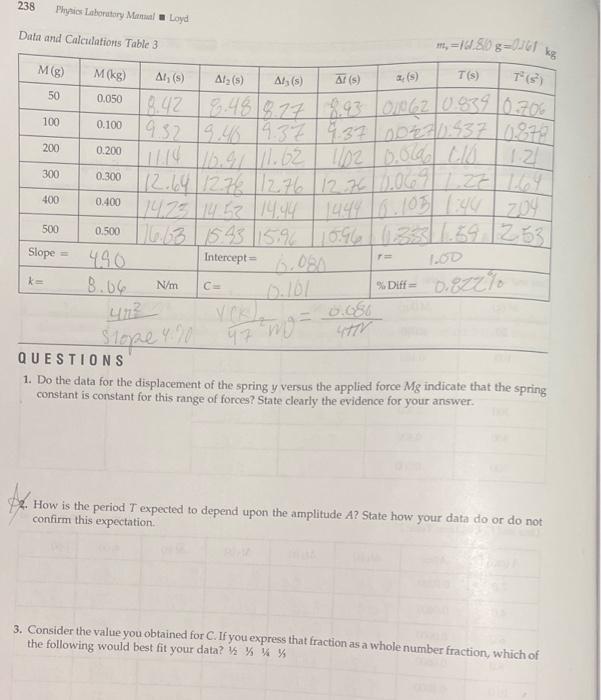 238 Physics Laboratory Manual ■ Loyd
Data and Calculations Table 3
M (g) M (kg) Δt₁ (s) Δt₂ (s) Δt₃ (s) Δt (s) αₜ (s) T (s) T² (s²)
50 0.050 8.42 8.48 8.77 8.93 0.839 0.706
100 0.100 9.32 9.46 9.37 9.37 0.937
200 0.200 11.14 11.02
300 0.300 12.64 12.76 12.76 12.76 0.069 1.27 1.64
400 0.400 14.52 14.44 1444 0.103 1.44 204
500 0.500 16.63 15.43 15.96 15.96 1.59 2.53
Slope = 4.90 Intercept = 0.080 r = 1.00
k = 8.06 N/m C = 0.101 % Diff = 0.822%
4π²
slope
QUESTIONS
1. Do the data for the displacement of the spring y versus the applied force Mg indicate that the spring
constant is constant for this range of forces? State clearly the evidence for your answer.
2. How is the period T expected to depend upon the amplitude A? State how your data do or do not
confirm this expectation.
3. Consider the value you obtained for C. If you express that fraction as a whole number fraction, which of
the following would best fit your data? ½ ⅓ ¼ ⅕